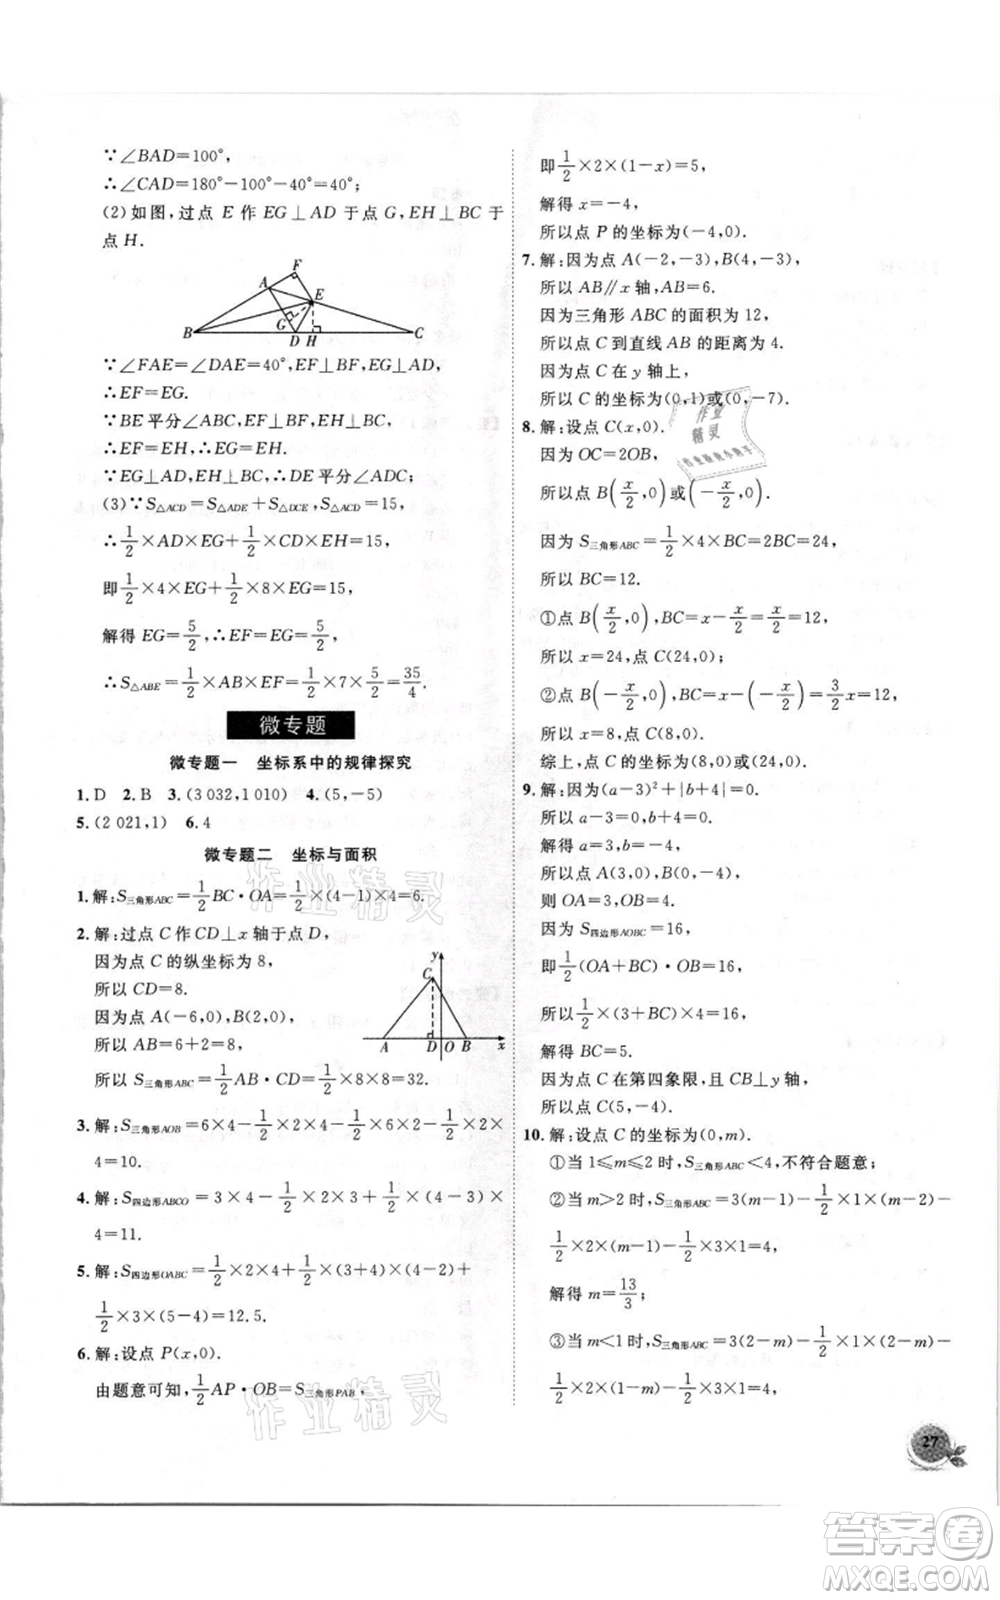 ∵∠BAD=100°,
∴∠CAD=180°-100°-40°=40°;
(2)如图,过点 E 作 EG⊥AD 于点 G,EH⊥BC 于
点 H.
F
A
E
G
B
D H
C
∵∠FAE=∠DAE=40°,EF⊥BF,EG⊥AD,
∴EF=EG.
∵BE平分∠ABC,EF⊥BF,EH⊥BC,
∴EF=EH,∴EG=EH,
∵EG⊥AD,EH⊥BC,∴DE平分∠ADC;
(3)∵S△ACD=S△ADE+S△DCE=15,
∴1/2×AD×EG+1/2×CD×EH=15,
即1/2×4×EG+1/2×8×EG=15,
解得 EG=5/2,∴EF=EG=5/2,
∴S△ABE=1/2×AB×EF=1/2×7×5/2=35/4.
微专题
微专题一 坐标系中的规律探究
1.D 2.B 3.(3 032,1 010) 4.(5,-5)
5.(2 021,1) 6.4
微专题二 坐标与面积
1.解:S三角形ABC=1/2BC·OA=1/2×(4-1)×4=6.
2.解:过点 C 作 CD⊥x 轴于点 D,
因为点 C 的纵坐标为 8,
所以 CD=8.
因为点 A(-6,0),B(2,0),
所以 AB=6+2=8,
所以 S三角形ABC=1/2AB·CD=1/2×8×8=32.
y
C
A
D O B
x
3.解:S三角形AOB=6×4-1/2×2×4-1/2×6×2-1/2×2×
4=10.
4.解:S四边形ABCO=3×4-1/2×1×3+1/2×1×
4-11.
5.解:S四边形OABC=1/2×2×4+1/2×(3+4)×2+
1/2×3×(5-4)=12.5.
6.解:设点 P(x,0).
由题意可知,1/2AP·OB=S三角形PAB,
即1/2×2×(1-x)=5,
解得 x=-4,
所以点 P 的坐标为(-4,0).
7.解:因为点 A(-2,-3),B(4,-3),
所以 AB∥x 轴,AB=6.
因为三角形 ABC 的面积为 12,
所以点 C 到直线 AB 的距离为 4.
因为点 C 在 y 轴上,
所以 C 的坐标为(0,1)或(0,-7).
8.解:设点 C(x,0).
因为 OC=2OB,
所以点 B(x/2,0)或(-x/2,0).
因为 S三角形ABC=1/2×4×BC=2BC=24,
所以 BC=12.
①点 B(x/2,0),BC=x-x/2=x/2=12,
所以 x=24,点 C(24,0);
②点 B(-x/2,0),BC=x-(-x/2)=3/2x=12,
所以 x=8,点 C(8,0).
综上,点 C 的坐标为(8,0)或(24,0).
9.解:因为(a-3)²+|b+4|=0.
所以 a-3=0,b+4=0.
解得 a=3,b=-4,
所以点 A(3,0),点 B(0,-4).
则 OA=3,OB=4.
因为 S四边形AOBC=16,
即1/2(OA+BC)·OB=16,
所以1/2×(3+BC)×4=16,
解得 BC=5.
因为点 C 在第四象限,且 CB⊥y 轴,
所以点 C(5,-4).
10.解:设点 C 的坐标为(0,m).
①当 1≤m≤2 时,S三角形ABC<4,不符合题意;
②当 m>2 时,S三角形ABC=3(m-1)-1/2×2×(m-2)-
1/2×1×(m-1)-1/2×3×1=4,
解得 m=13/3;
③当 m<1 时,S三角形ABC=3(2-m)-1/2×2×(2-m)-
1/2×1×(1-m)-1/2×3×1=4,
27
作业精灵
作业精灵
作业精灵
答案卷
MXQE.COM